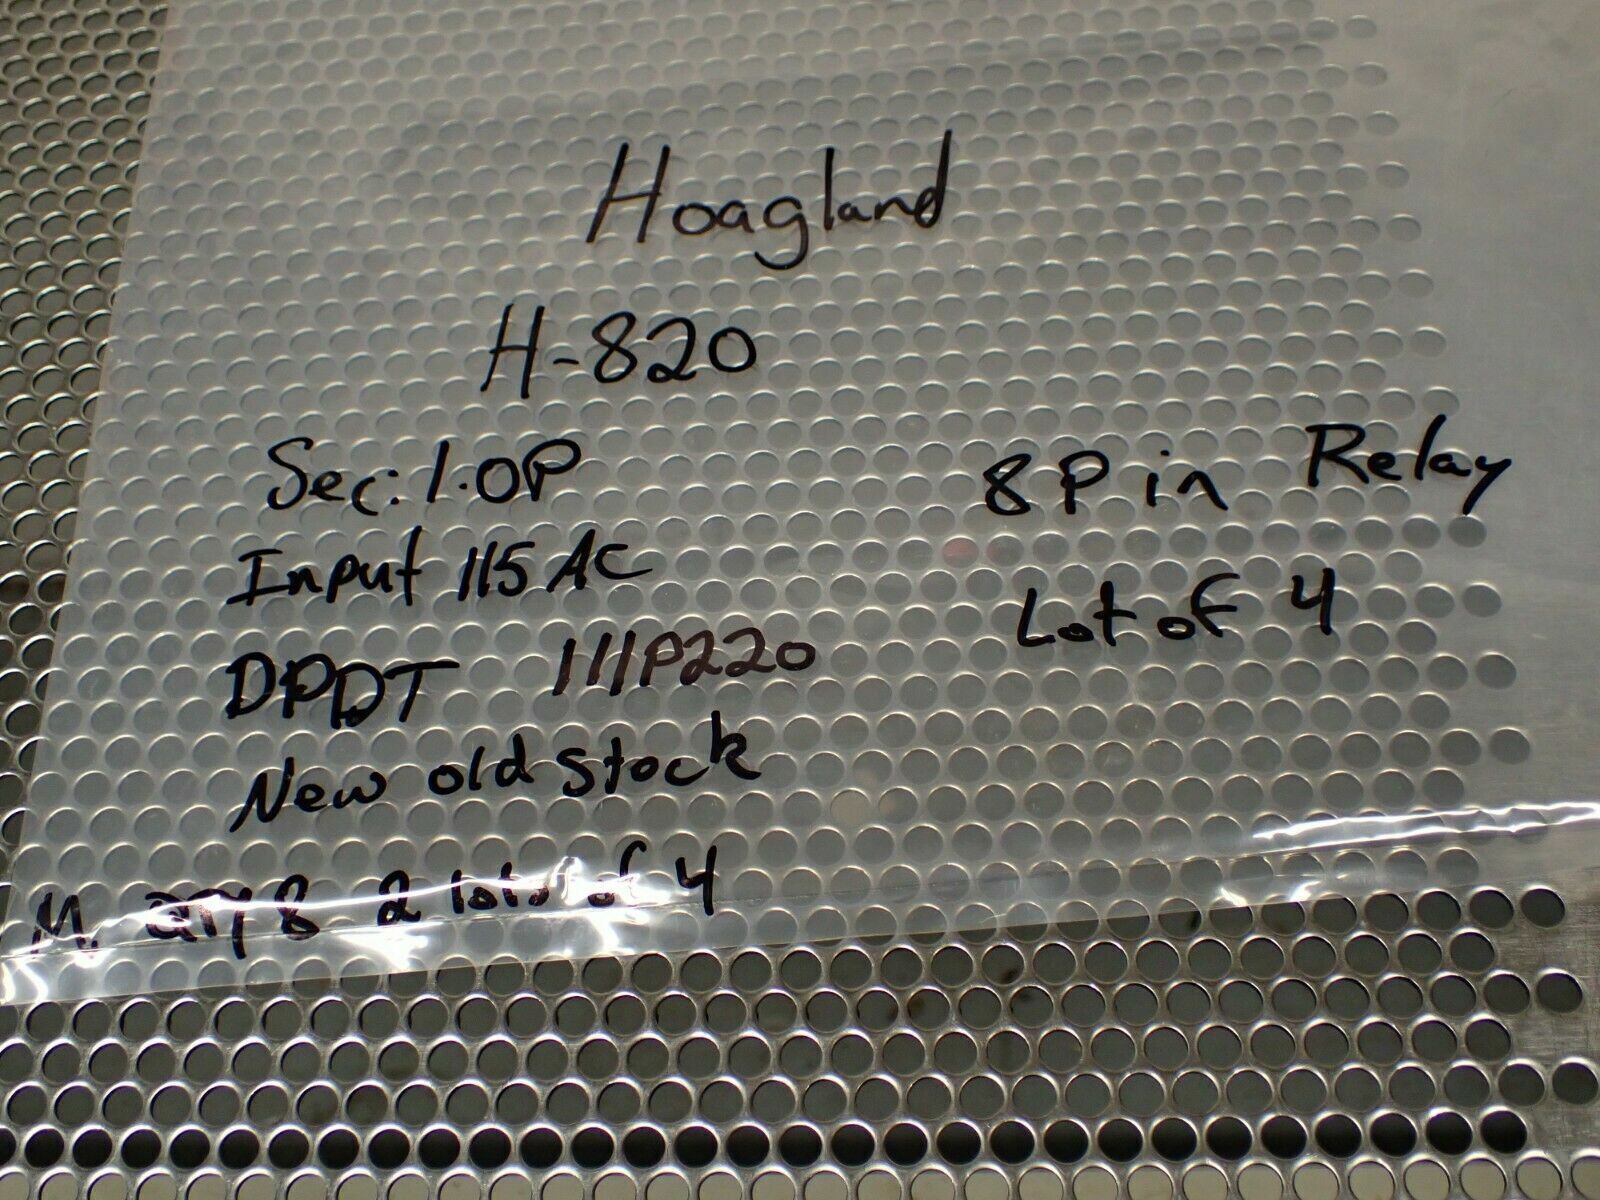 Hoagland
H-820
Sec: 1.0P
8 Pin Relay
Input 115 AC
Lot of 4
DPDT 111P220
New old stock
M. QTY 8 2 lots of 4